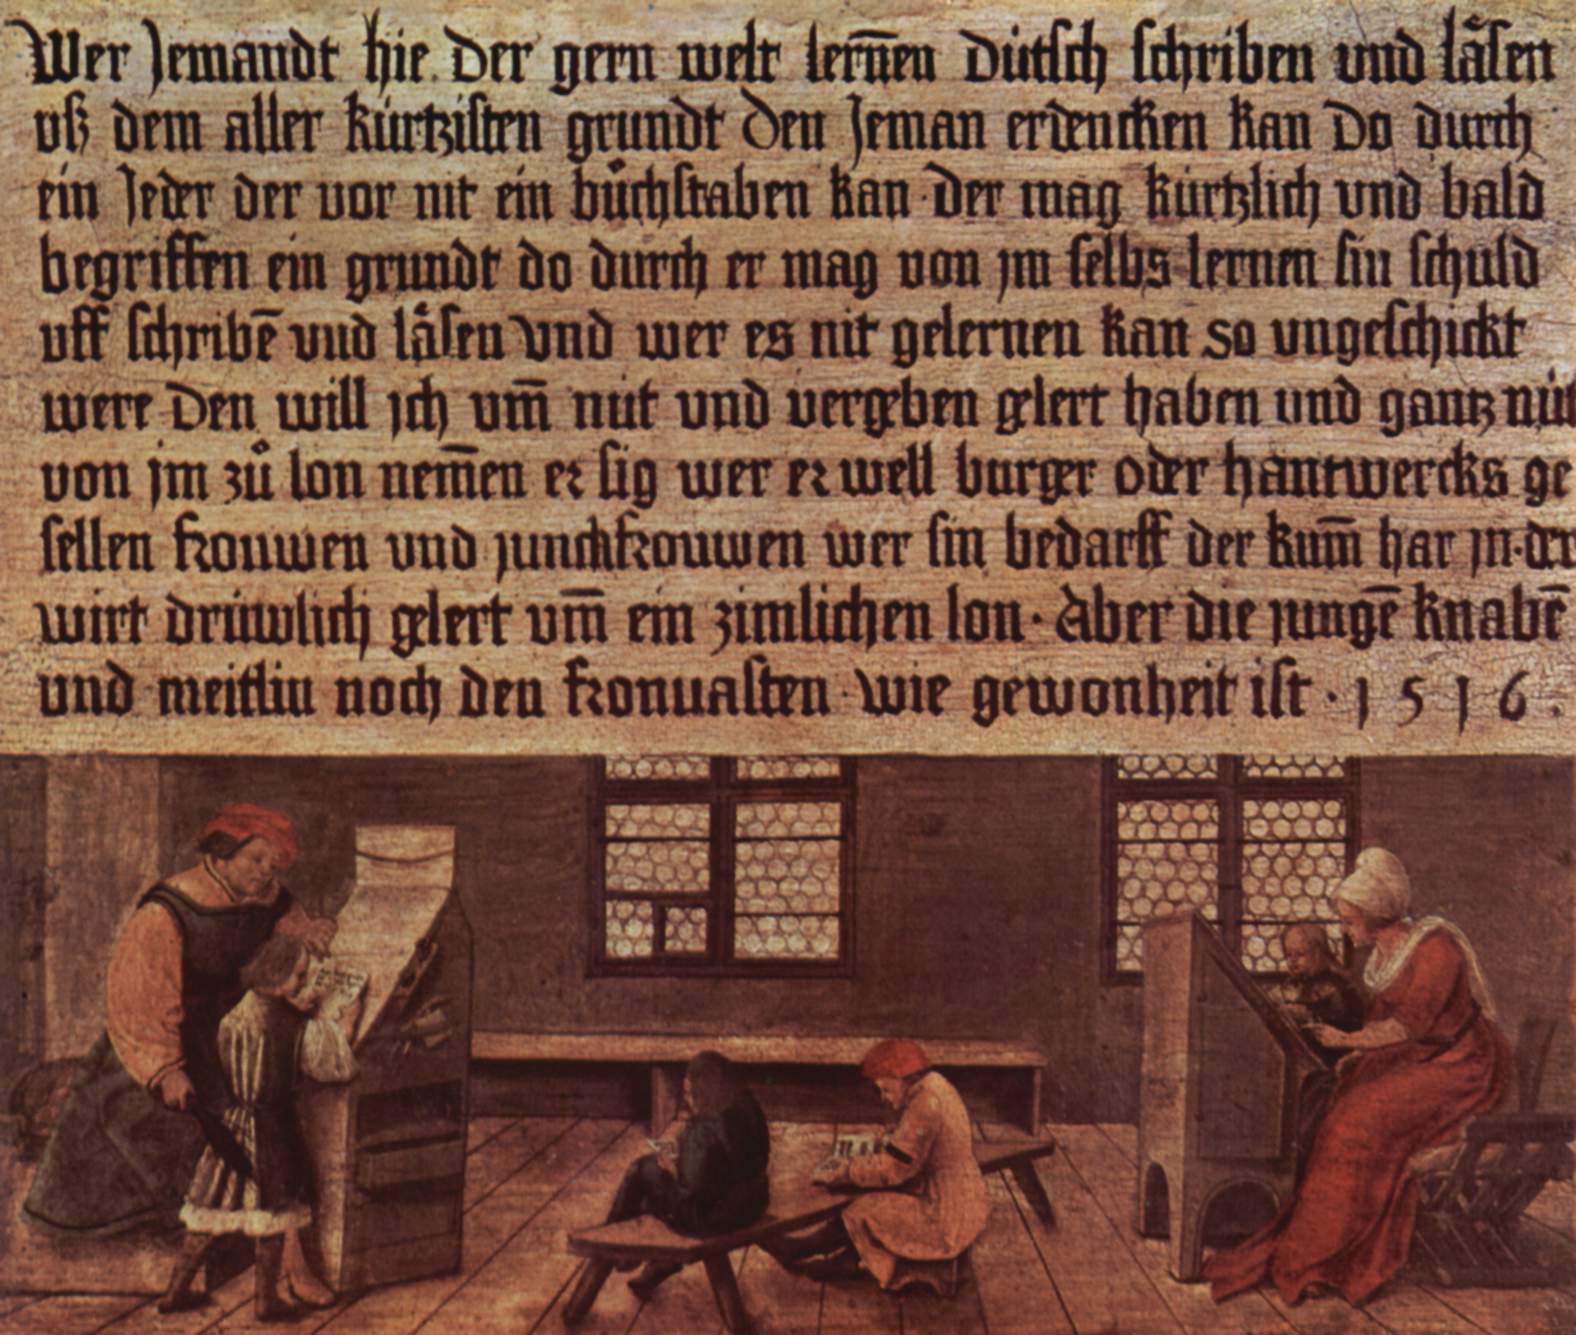 Wer Jemandt hie der gern welt lern̄en dütsch schriben und läsen
uß dem aller kürtzisten grundt den Jeman erdencken kan do durch
ein Jeder der vor nit ein bůchstaben kan · der mag kürtzlich und bald
begriffen ein grundt do durch er mag von jm selbs lernen sin schuld
uff schribē und läsen und wer es nit gelernen kan so ungeschickt
were den will ich um̄ nüt und vergeben gelert haben und gantz nüt
von jm zů lon nem̄en er sig wer er well burger oder hantwercks ge
sellen frouwen und junckfrouwen wer sin bedarff der kum̄ har jn · der
wirt drüwlich gelert um̄ ein zimlichen lon · Aber die jungē knabē
und meitlin noch den fronuasten · wie gewonheit ist · 1 5 1 6 .